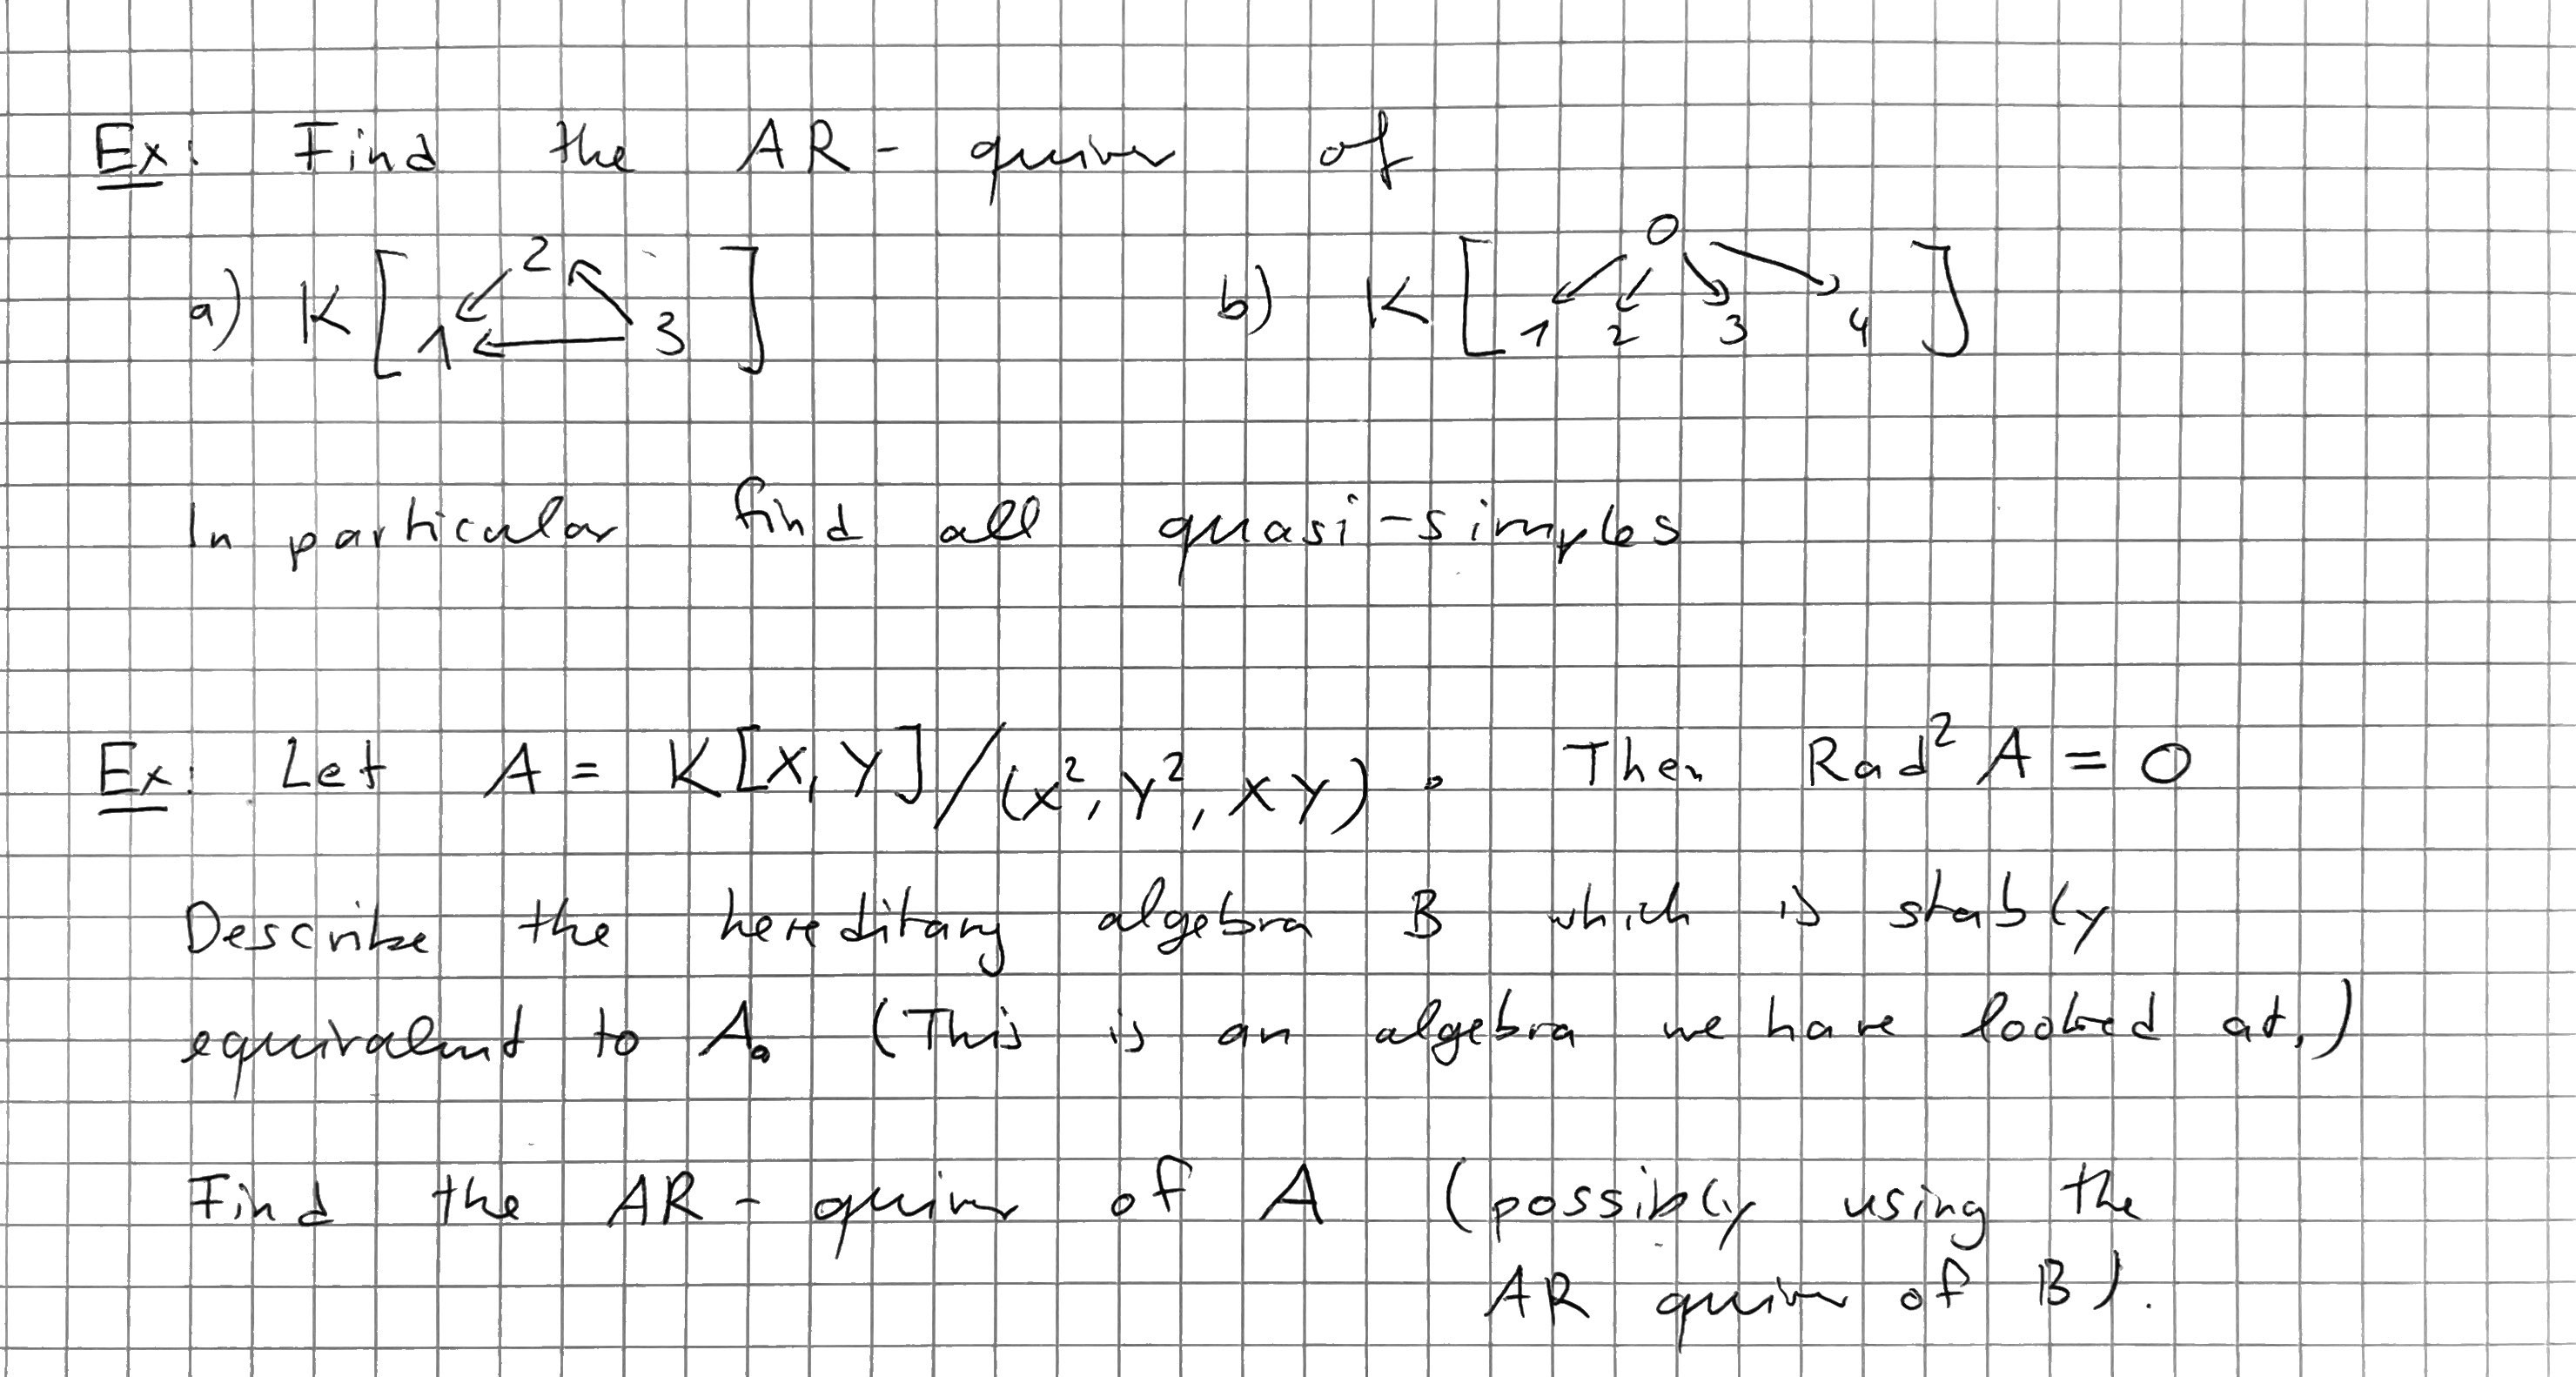 Ex: Find the AR-quiver of
a) K[1 ← 2, 3 → 2, 3 → 1] b) K[0 → 1, 0 → 2, 0 → 3, 0 → 4]
In particular find all quasi-simples
Ex: Let A = K[X,Y]/(X², Y², XY). Then Rad² A = 0
Describe the hereditary algebra B which is stably
equivalent to A. (This is an algebra we have looked at.)
Find the AR-quiver of A (possibly using the
AR quiver of B).